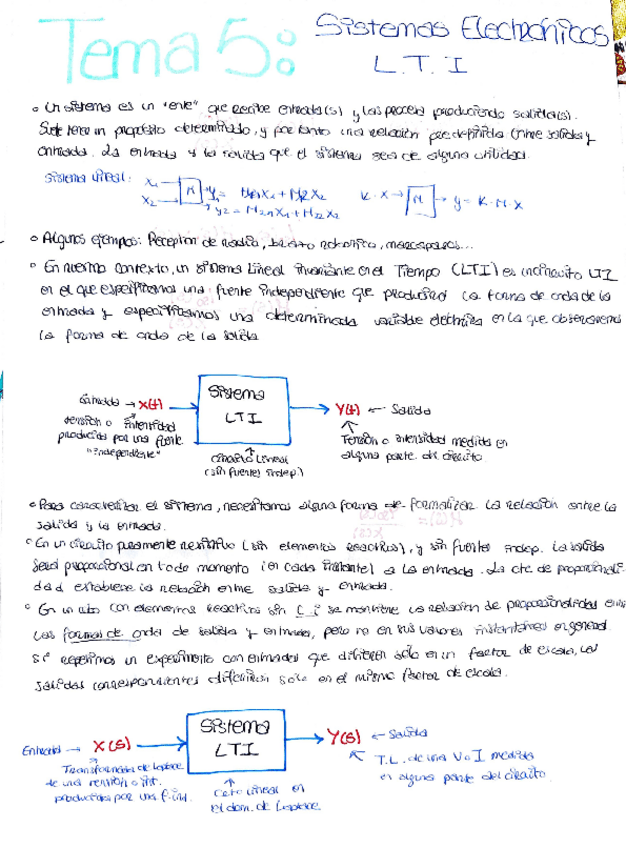 Tema 5: Sistemas Electrónicos
L.T.I
o Un sistema es un "ente" que recibe entrada(s) y las procesa produciendo salida(s).
Suele tener un propósito determinado, y por tanto una relación predefinida entre salida y
entrada. La entrada y la salida que el sistema sea de alguna utilidad.
Sistema lineal: x1 x2 M y1 = M11X1 + M12X2 y2 = M21X1 + M22X2 K·X → M → y = K·M·X
o Algunos ejemplos: Receptor de radio, brazo robótico, marcapasos...
o En nuestro contexto, un sistema Lineal invariante en el Tiempo (LTI) es un circuito LTI
en el que especificamos una fuente independiente que producirá la forma de onda de la
entrada y especificamos una determinada variable eléctrica en la que observaremos
la forma de onda de la salida.
Entrada → X(t) → Sistema LTI → Y(t) ← Salida
tensión o intensidad
producida por una fuente
"independiente"
circuito Lineal
(sin fuentes indep.)
Tensión o intensidad medida en
alguna parte del circuito
o Para caracterizar el sistema, necesitamos alguna forma de formalizar la relación entre la
salida y la entrada.
o En un circuito puramente resistivo (sin elementos reactivos), y sin fuentes indep. la salida
será proporcional en todo momento (en cada instante) a la entrada. La cte de proporcionali-
dad establece la relación entre salida y entrada.
o En un cto con elementos reactivos sin C.I se mantiene la relación de proporcionalidad entre
las formas de onda de salida y entrada, pero no en sus valores instantáneos en general.
Si repetimos un experimento con entradas que difieren sólo en un factor de escala, las
salidas correspondientes diferirán solo en el mismo factor de escala.
Entrada → X(s) → Sistema LTI → Y(s) ← Salida
Transformada de Laplace
de una tensión o int.
producida por una f.ind.
Cto Lineal en
el dom. de Laplace
T.L. de una V o I medida
en alguna parte del circuito.